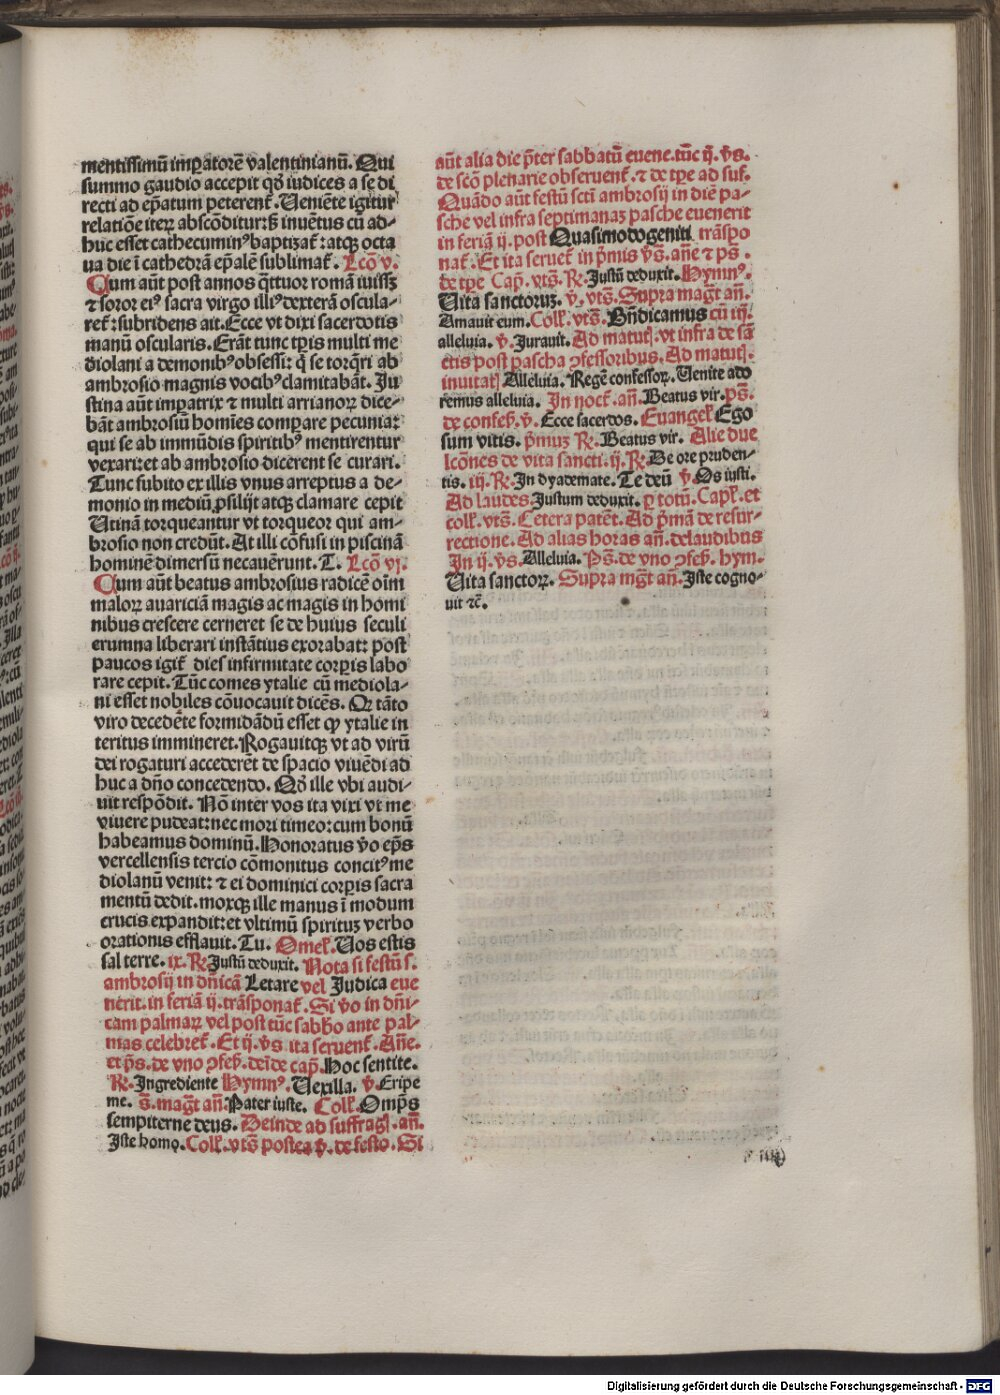 mentissimū imꝑatorē valentinianū. Qui
summo gaudio accepit qđ iudices a se di
recti ad ep̄atum peterent̄. Ueniēte igitur
relatiōe iterꝝ abscōditur: sꝫ inuētus cū ad⸗
huc esset cathecuminꝰ baptizat̄: atqꝫ octa
ua die ī cathedrā ep̄alē sublimat̄. Lcō v.
Cum aūt post annos q̄ttuor romā iuissꝫ
⁊ soror eiꝰ sacra virgo illiꝰ dexterā oscula⸗
ret̄: subridens ait. Ecce vt dixi sacerdotis
manū oscularis. Erāt tunc tꝑis multi me
diolani a demonibꝰ obsessi: q̄ se torq̄ri ab
ambrosio magnis vocibꝰ clamitabāt. Ju
stina aūt imꝑatrix ⁊ multi arrianoꝝ dice⸗
bāt ambrosiū homīes comꝑare pecunia:
qui se ab immūdis spiritibꝰ mentirentur
vexari: et ab ambrosio dicerent se curari.
Tunc subito ex illis vnus arreptus a de⸗
monio in mediū ꝓsilijt atqꝫ clamare cepit
Utinā torqueantur vt torqueor qui am⸗
brosio non credūt. At illi cōfusi in piscinā
hominē dimersū necauērunt. T. Lcō vj.
Cum aūt beatus ambrosius radicē oīm
maloꝝ auariciā magis ac magis in homi
nibus crescere cerneret se de huius seculi
erumna liberari instātius exorabat: post
paucos igit̄ dies infirmitate corꝑis labo
rare cepit. Tūc comes ytalie cū mediola⸗
ni esset nobiles cōuocauit dicēs. Qꝛ tāto
viro decedēte formidādū esset ꝙ ytalie in
teritus immineret. Rogauitqꝫ vt ad virū
dei rogaturi accederēt de spacio viuēdi ad
huc a dn̄o concedendo. Qđ ille vbi audi⸗
uit respōdit. Nō inter vos ita vixi vt me
viuere pudeat: nec mori timeo: cum bonū
habeamus dominū. Honoratus v̄o ep̄s
vercellensis tercio cōmonitus concitꝰ me
diolanū venit: ⁊ ei dominici corꝑis sacra
mentū dedit. moxqꝫ ille manus ī modum
crucis expandit: et vltimū spirituꝫ verbo
orationis efflauit. Tu. Omel̄. Uos estis
sal terre. ix. R̄. Justū deduxit. Nota si festū s.
ambrosij in dn̄icā Letare vel Judica eue
nerit. in feriā ij. trāsponat̄. Si v̄o in dn̄i⸗
cam palmaꝝ vel post tūc sabb̄o ante pal⸗
mas celebret̄. Et ij. v̄s ita seruent̄. Añe.
et p̄s. de vno ɔfess̄. deīde cap̄. Hoc sentite.
R̄. Ingrediente Hymnꝰ. Uexilla. v̄. Eripe
me. s̄. maḡt añ. Pater iuste. Coll̄. Omp̄s
sempiterne deus. Deinde ad suffrag̃. añ.
Iste homo. Coll̄. vts̄. postea v̄. de festo. Si
aūt alia die p̄ter sabbatū euene. tūc ij. v̄s.
de scō plenarie obseruent̄. ⁊ de tꝑe ad suf.
Quādo aūt festū scti ambrosij in diē pa⸗
sche vel infra septimanaꝫ pasche euenerit
in feriā ij. post Quasimodogeniti trāspo
nat̄. Et ita seruet̄ in p̄mis v̄s. añe ⁊ ps̄.
de tꝑe Cap̄. vts̄. R̄. Justū deduxit. Hymnꝰ.
Uita sanctoruꝫ. v̄. vts̄. Supra maḡt añ.
Amauit eum. Coll̄. vts̄. Bn̄dicamus cū iij.
alleluia. v̄. Jurauit. Ad matut̄. vt infra de sā
ctis post pascha ɔfessoribus. Ad matut̄.
inuitat̄ Alleluia. Regē confessoꝝ. Uenite ado
remus alleluia. In noct̄. añ. Beatus vir. ps̄.
de confess̄. v̄. Ecce sacerdos. Euangel̄ Ego
sum vitis. p̄muꝫ R̄. Beatus vir. Alie due
lcōnes de vita sancti. ij. R̄. De ore pruden⸗
tis. iij. R̄. In dyademate. Te deū v̄ Os iusti.
Ad laudes. Justum deduxit. ꝑ totū. Capl̄. et
coll̄. vts̄. Cetera patēt. Ad p̄mā de resur⸗
rectione. Ad alias horas añ. de laudibus
In ij. v̄s. Alleluia. Ps̄. de vno ɔfess̄. hym.
Uita sanctoꝝ. Supra mg̃t añ. Iste cogno⸗
uit ⁊c̄.
Digitalisierung gefördert durch die Deutsche Forschungsgemeinschaft - DFG